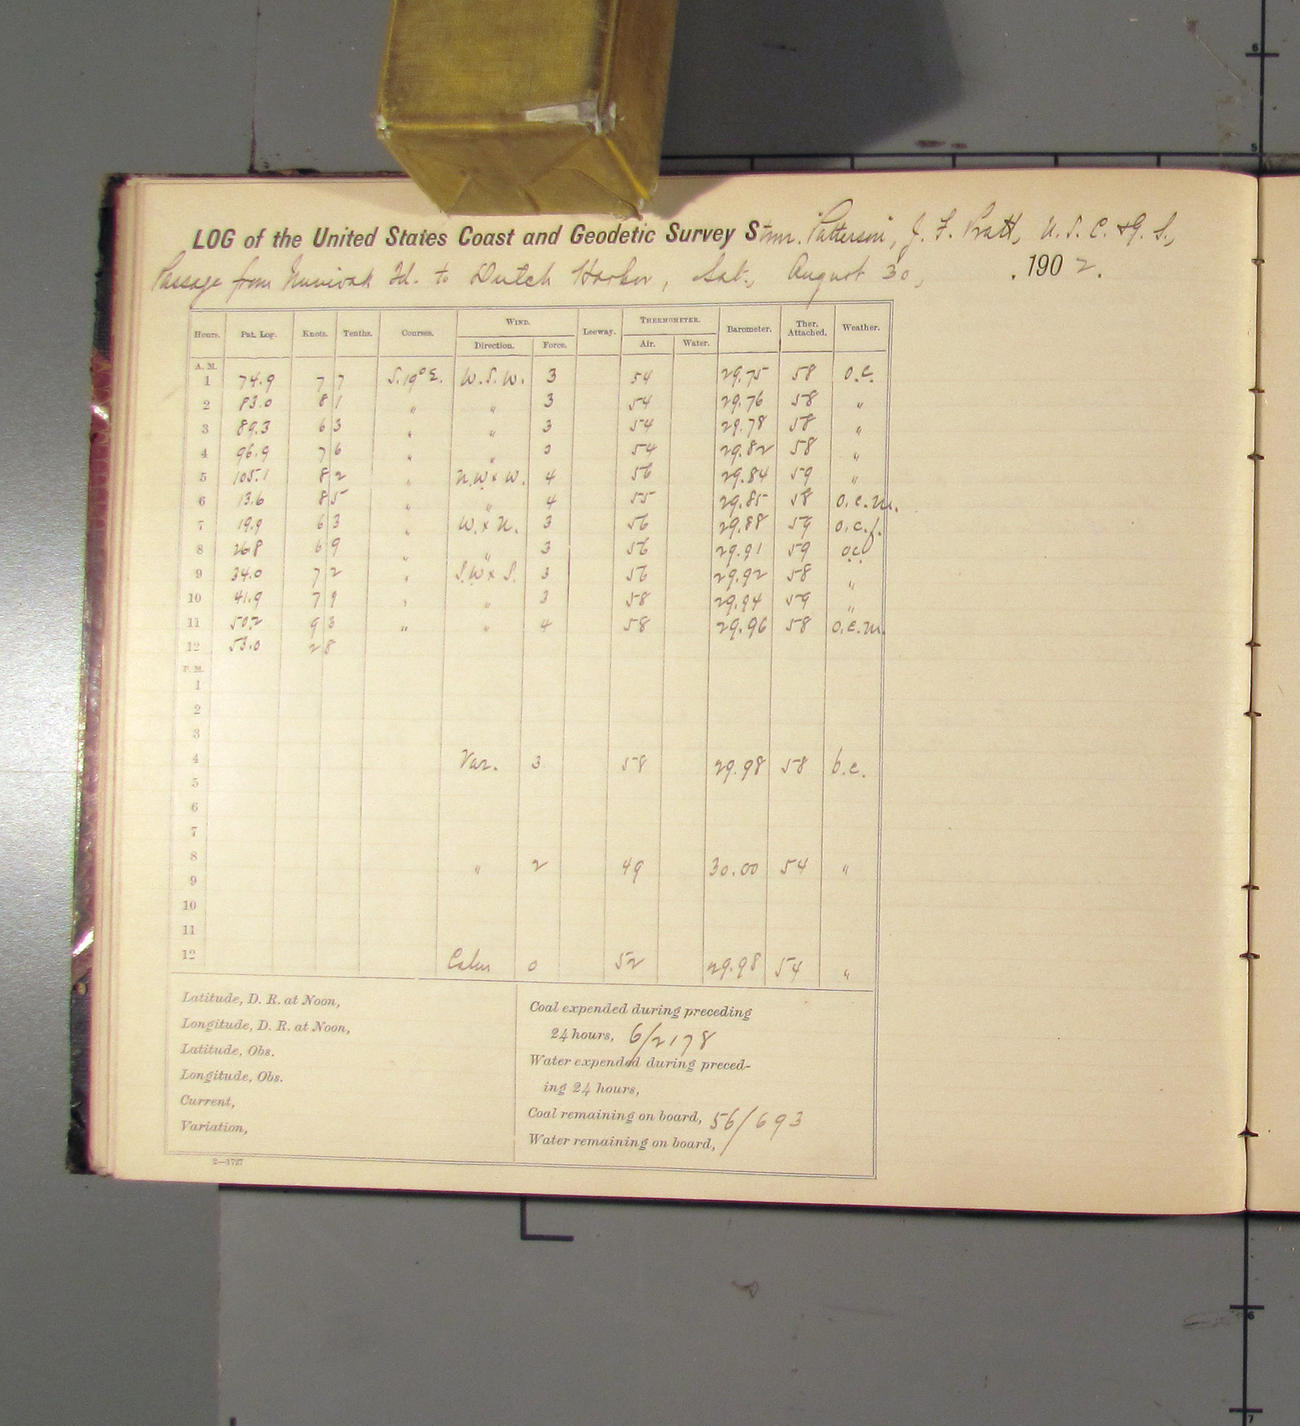 LOG of the United States Coast and Geodetic Survey Stmr. Patterson, J. F. Pratt, U. S. C. & G. S.,
Passage from Nunivak Id. to Dutch Harbor, Sat., August 30, . 1902.
Hours. Pat. Log. Knots. Tenths. Courses. WIND. Direction. Force. Leeway. THERMOMETER. Air. Water. Barometer. Ther. Attached. Weather.
A. M.
1 74.9 7 7 S. 19° E. W. S. W. 3 54 29.75 58 o.c.
2 83.0 8 1 " " 3 54 29.76 58 "
3 89.3 6 3 " " 3 54 29.78 58 "
4 96.9 7 6 " " 3 54 29.82 58 "
5 105.1 8 2 " N.W. x W. 4 56 29.84 59 "
6 13.6 8 5 " " 4 55 29.85 58 o.c.m.
7 19.9 6 3 " W. x N. 3 56 29.88 59 o.c.f.
8 26.8 6 9 " " 3 56 29.91 59 o.c.
9 34.0 7 2 " S.W. x S. 3 56 29.92 58 "
10 41.9 7 9 " " 3 58 29.94 59 "
11 50.2 9 3 " " 4 58 29.96 58 o.c.m.
12 53.0 2 8
P. M.
1
2
3
4 Var. 3 58 29.98 58 b.c.
5
6
7
8 " 2 49 30.00 54 "
9
10
11
12 Calm 0 52 29.98 54 "
Latitude, D. R. at Noon,
Longitude, D. R. at Noon,
Latitude, Obs.
Longitude, Obs.
Current,
Variation,
Coal expended during preceding
24 hours, 6/2178
Water expended during preced-
ing 24 hours,
Coal remaining on board, 56/693
Water remaining on board,
2—1727
6
5
6
7